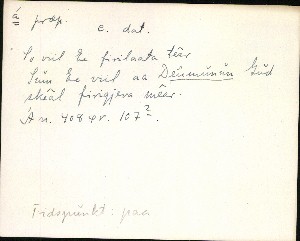 á præp.
c. dat.
So viil Ee firilaata tær
Sum Ee viil aa Deumunun Gud
skeal firigjeva mêar.
A n. 408 gr. 107 2.
Tidspunkt: paa